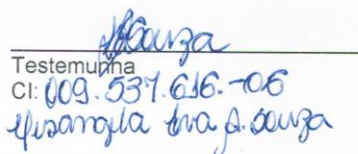 Souza
Testemunha
CI: 009.537.616.-06
Elisangela Eva A. Souza